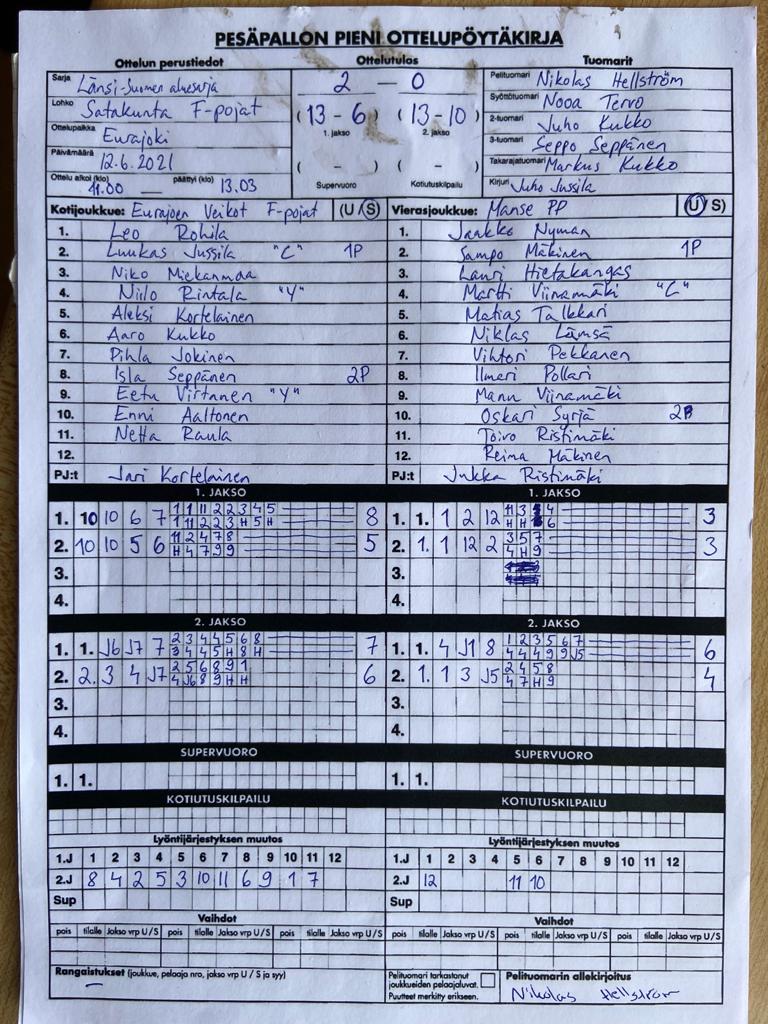 PESÄPALLON PIENI OTTELUPÖYTÄKIRJA
Ottelun perustiedot Ottelutulos Tuomarit
Sarja Länsi-Suomen aluesarja
Lohko Satakunta F-pojat
Ottelupaikka Eurajoki
Päivämäärä 12.6.2021
Ottelu alkoi (klo) 11.00 — päättyi (klo) 13.03
2 — 0
(13 - 6) (13 - 10)
1. jakso 2. jakso
( - ) ( - )
Supervuoro Kotiutuskilpailu
Pelituomari Nikolas Hellström
Syöttötuomari Nooa Tervo
2-tuomari Juho Kukko
3-tuomari Seppo Seppänen
Takarajatuomari Markus Kukko
Kirjuri Juho Jussila
Kotijoukkue: Eurajoen Veikot F-pojat (U/S)
1. Leo Rohila
2. Luukas Jussila "C" 1P
3. Niko Miekanmaa
4. Niilo Rintala "Y"
5. Aleksi Kortelainen
6. Aaro Kukko
7. Pihla Jokinen
8. Isla Seppänen 2P
9. Eetu Virtanen "Y"
10. Enni Aaltonen
11. Netta Raula
12.
PJ:t Jari Kortelainen
Vierasjoukkue: Manse PP (U/S)
1. Jaakko Nyman
2. Sampo Mäkinen 1P
3. Lauri Hietakangas
4. Martti Viinamäki "C"
5. Matias Talkkari
6. Niklas Lämsä
7. Vihtori Pekkanen
8. Ilmari Pollari
9. Manu Viinamäki
10. Oskari Syrjä 2P
11. Toivo Ristimäki
12. Reima Mäkinen
PJ:t Jukka Ristimäki
1. JAKSO
1. 10 10 6 7 1 1 11 2 2 3 4 5 8
1 11 2 2 3 H 5 H
2. 10 10 5 6 11 2 4 7 8 5
H 4 7 9 9
3.
4.
1. JAKSO
1. 1. 1 2 12 3
2. 1. 1 12 2 3 5 7 3
4 H 9
3.
4.
2. JAKSO
1. 1. J6 J7 7 2 3 4 4 5 6 8 7
3 4 4 5 H 8 H
2. 2. 3 4 J7 2 5 6 8 9 1 6
4 J6 8 9 H H
3.
4.
2. JAKSO
1. 1. 4 J1 8 1 2 3 5 6 7 6
4 4 4 9 9 J5
2. 1. 1 3 J5 2 4 5 8 4
4 7 H 9
3.
4.
SUPERVUORO SUPERVUORO
1. 1. 1. 1.
KOTIUTUSKILPAILU KOTIUTUSKILPAILU
Lyöntijärjestyksen muutos
1.J 1 2 3 4 5 6 7 8 9 10 11 12
2.J 8 4 2 5 3 10 11 6 9 1 7
Sup
Lyöntijärjestyksen muutos
1.J 1 2 3 4 5 6 7 8 9 10 11 12
2.J 12 11 10
Sup
Vaihdot Vaihdot
pois tilalle Jakso vrp U/S pois tilalle Jakso vrp U/S pois tilalle Jakso vrp U/S
pois tilalle Jakso vrp U/S pois tilalle Jakso vrp U/S pois tilalle Jakso vrp U/S
Rangaistukset (joukkue, pelaaja nro, jakso vrp U / S ja syy)
–
Pelituomari tarkastanut
joukkueiden pelaajaluvat.
Puutteet merkitty erikseen.
Pelituomarin allekirjoitus
Nikolas Hellström